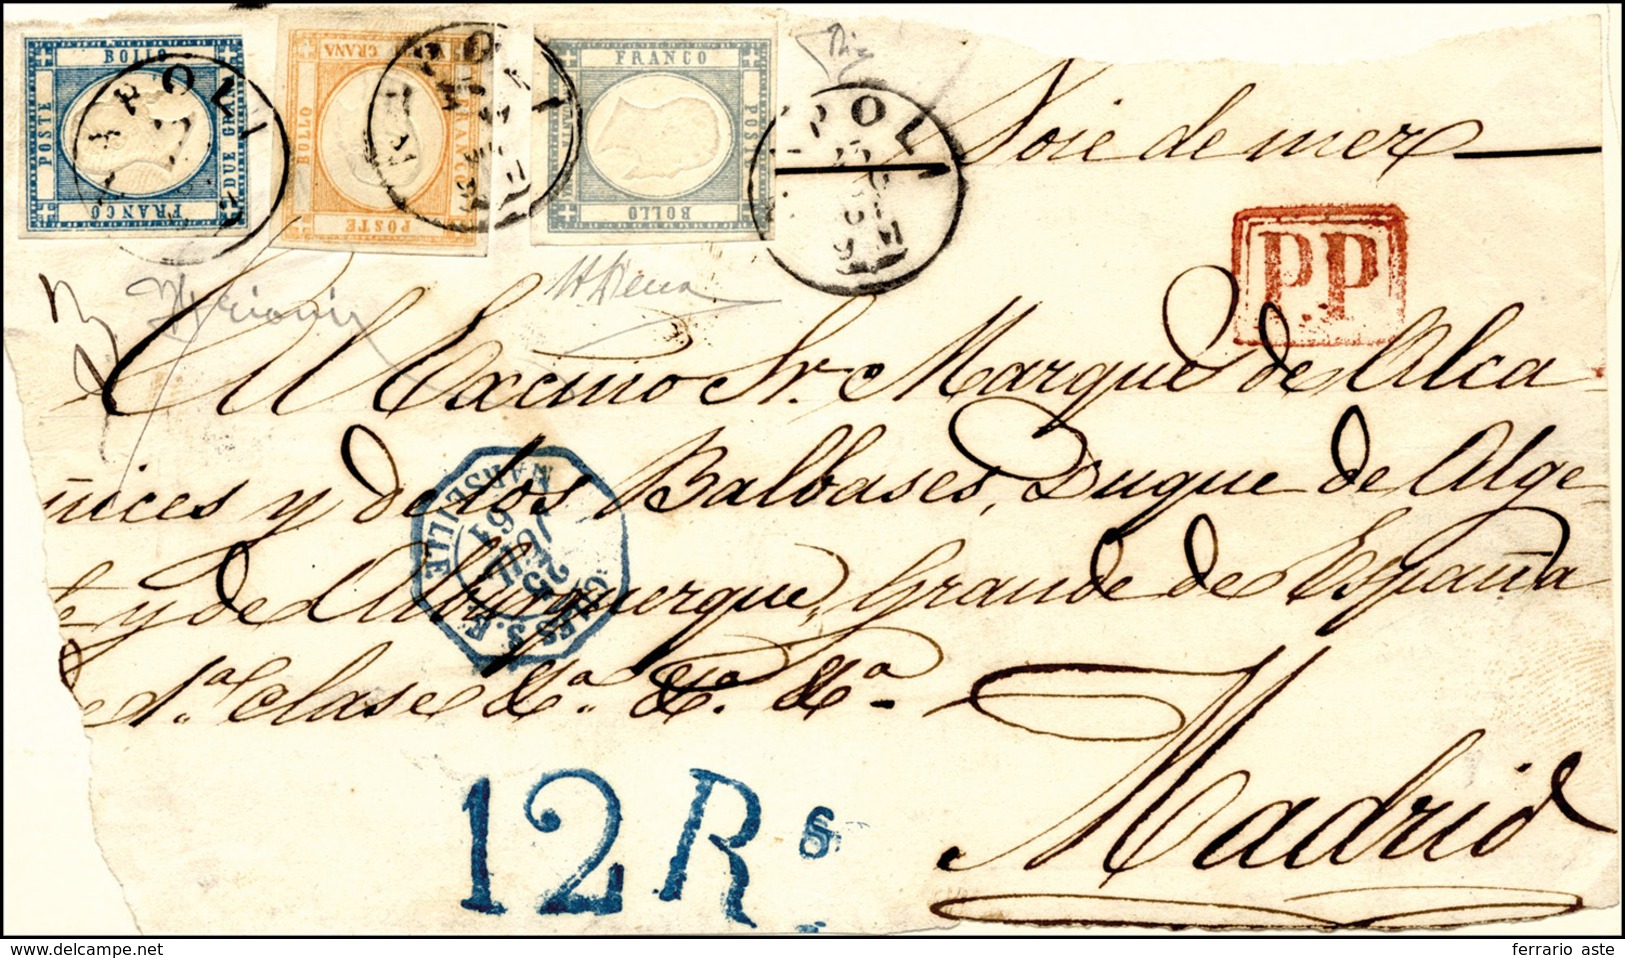 FRANCO BOLLO POSTE DUE GRANA
FRANCO BOLLO POSTE GRANA
FRANCO BOLLO POSTE
NAPOLI
Voie de mer
P.P
Al Excmo Sr. Marques de Alca
ñices y de los Balbases, Duque de Alge
te y de Alburquerque, Grande de España
de 1ª clase &ª. &ª. &ª.
Madrid
MARSEILLE
25 JUIL 61
12 Rs
delcampe.net
ferrario aste